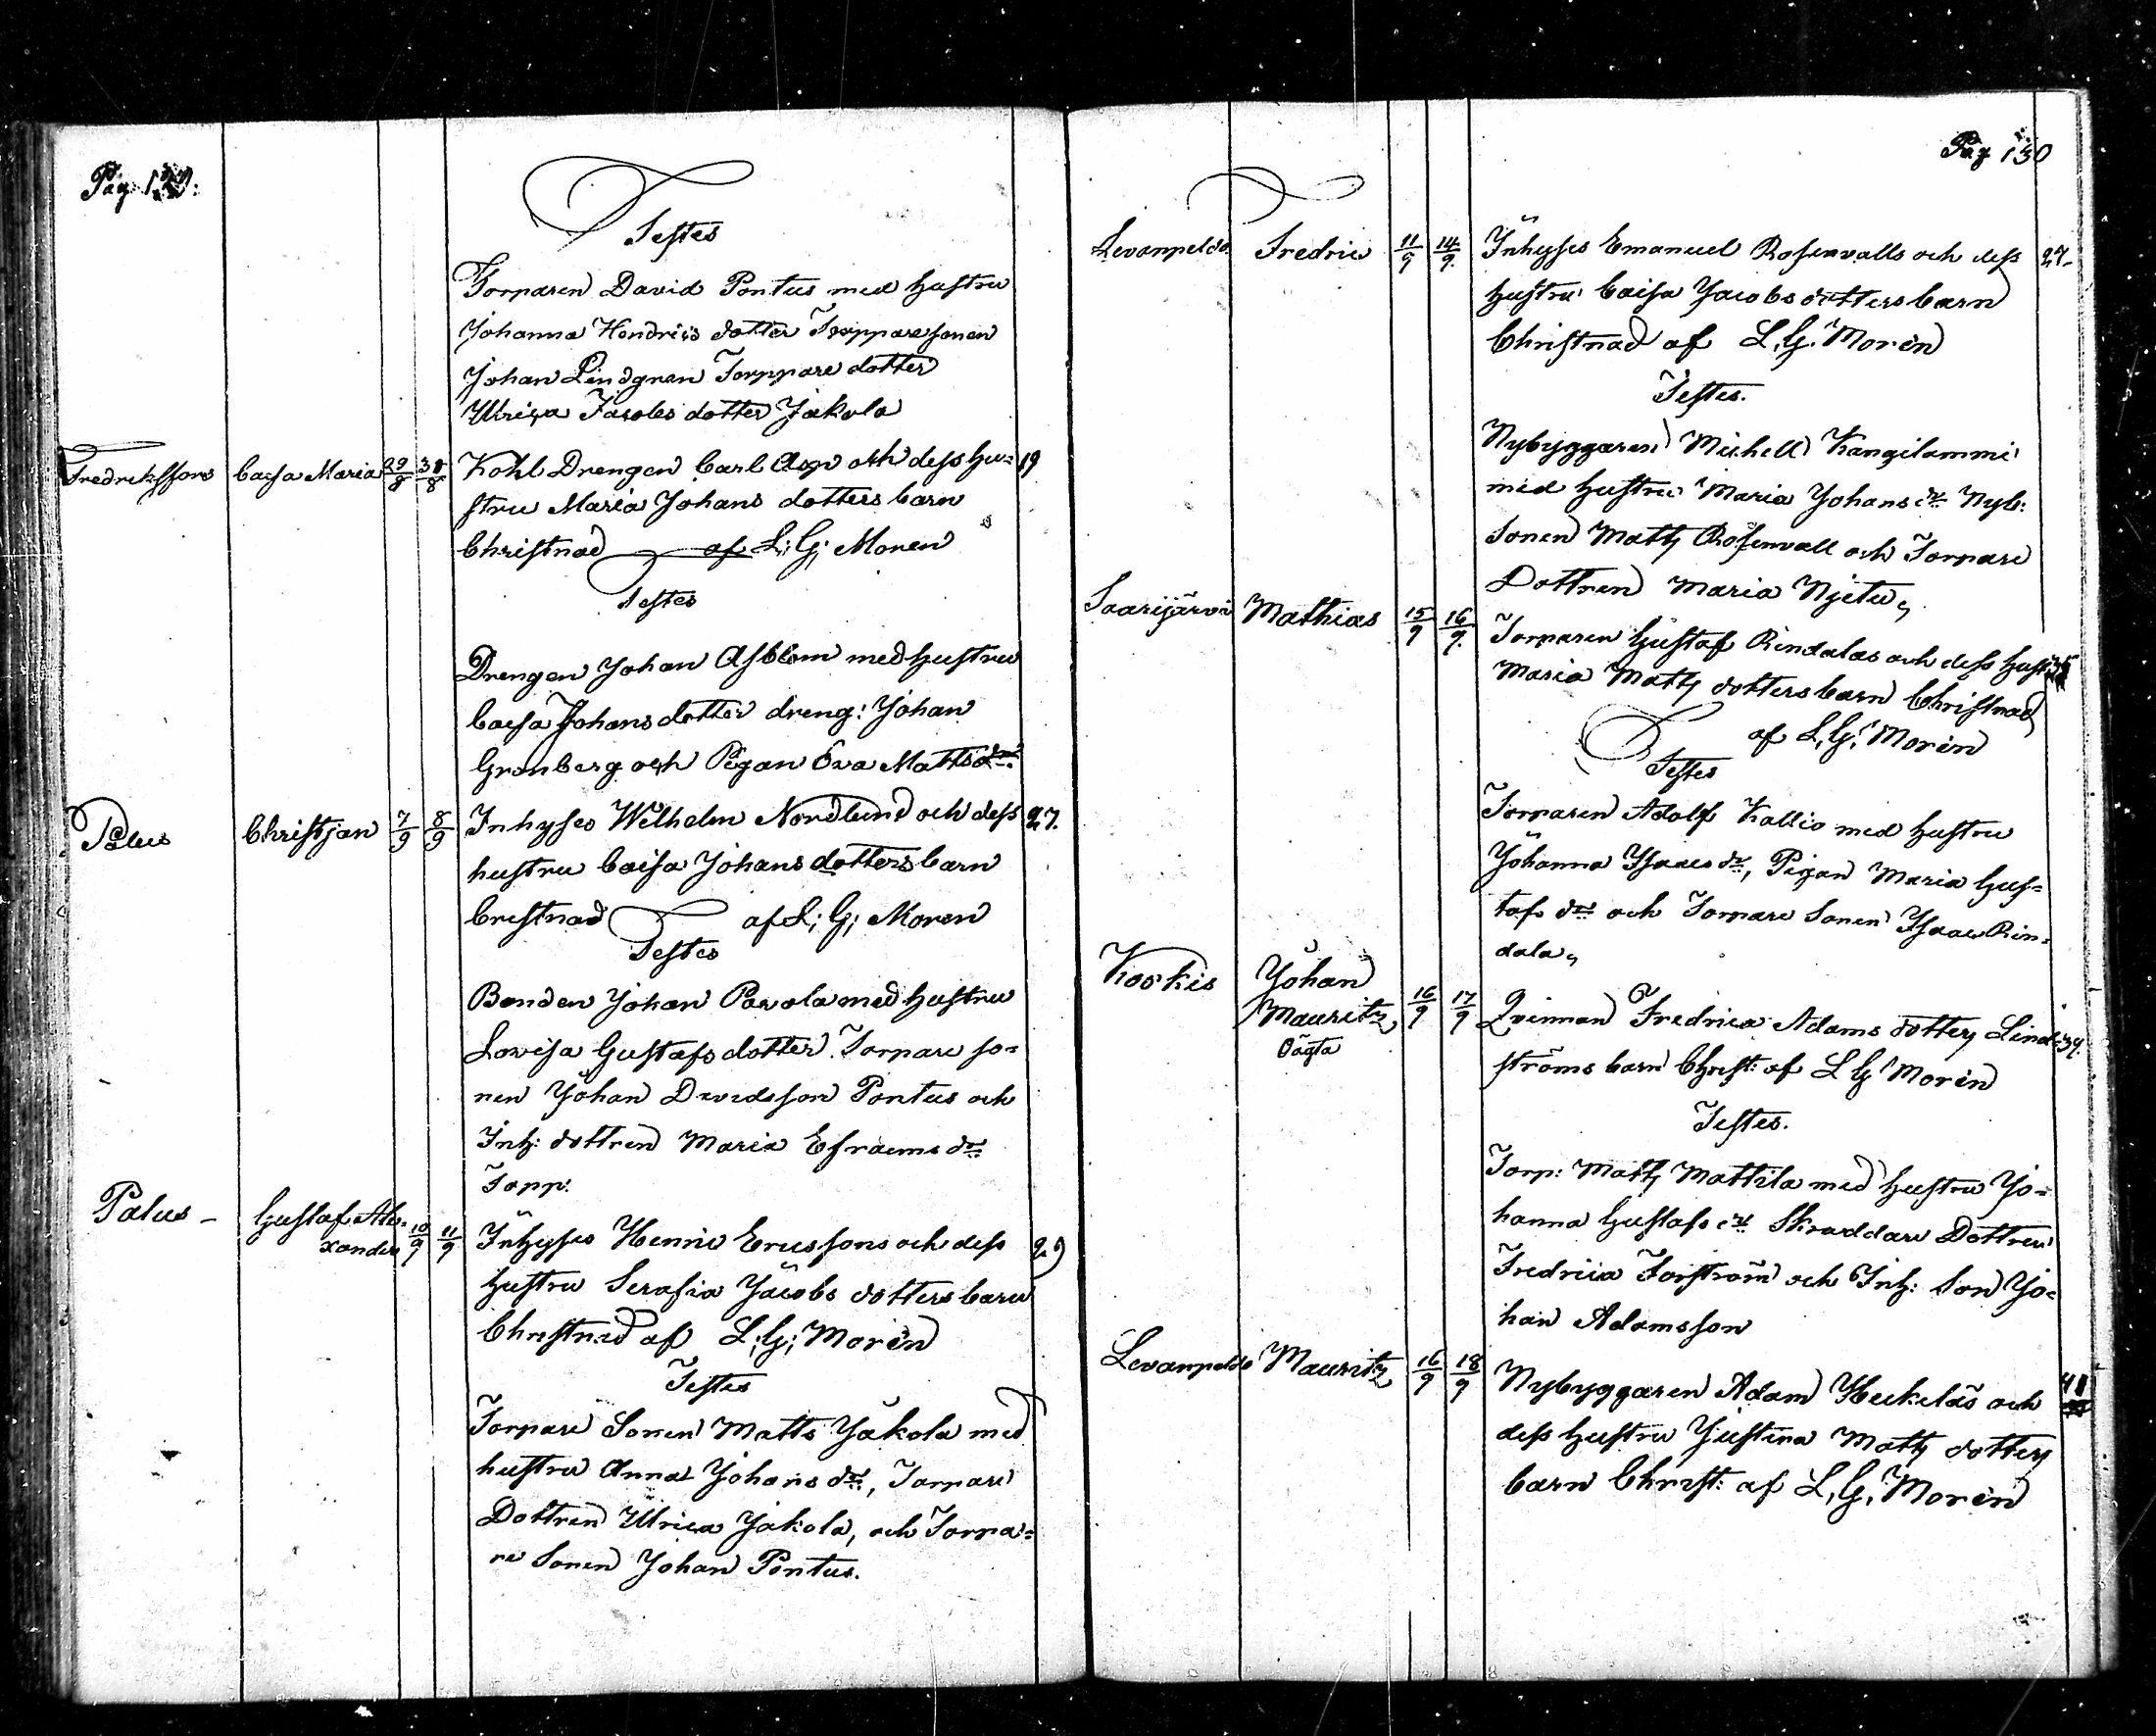 Pag 129:
Testes
Torparen David Pontus med hustru
Johanna Hendrics dotter Torppare sonen
Johan Lindgren Torppare dotter
Ulrica Jacobs dotter Jakola
Fredriksfors Caisa Maria 29/8 30/8 Kohl Drengen Carl Asp och dess hu= 19
stru Maria Johans dotters barn
Christnad af L; G; Moren
Testes
Drengen Johan Asblom med hustru
Caisa Johans dotter dreng: Johan
Grönberg och Pigan Eva Matts dr:
Palus Christjan 7/9 8/9 Inhyses Wilhelm Nordlund och dess 27.
hustru Caisa Johans dotters barn
Crestnad af L; G; Moren
Testes
Bonden Johan Pavola med hustru
Lovisa Gustafs dotter. Torpare so=
nen Johan Davidsson Pontus och
Inh: dottren Maria Efraems dr
Topp:
Palus – Gustaf Alexander 10/9 11/9 Inhyses Henric Ericssons och dess 29
hustru Serafia Jacobs dotters barn
Christnad af L; G; Morén
Testes
Torpare Sonen Matts Jakola med
hustru Anna Johans dr, Torpare
Dottren Ulrica Jakola, och Torpa=
re Sonen Johan Pontus.
Pag 130
Levanpeldo Fredric 11/9 14/9. Inhyses Emanuel Rosenvalls och dess 27.
hustru Caisa Jacobs dotters barn
Christnad af L. G. Morén
Testes.
Nybyggaren Michell Kangilammi
med hustru Maria Johans dr Nyb:
Sonen Matts Rosenvall och Torpare
Dottren Maria Njetu,
Saarijärvi Mathias 15/9 16/9. Torparen Gustaf Rindalas och dess hustru
Maria Matts dotters barn Christnad
af L, G, Morén
Testes
Torparen Adolf Kallio med hustru
Johanna Isaacs dr, Pigan Maria Gus=
tafs dr och Torpare Sonen Isaac Rin=
dala,
Koskis Johan
Mauritz 16/9 17/9 Qvinnan Fredrica Adams dotters Lind= 34.
Oägta
ströms barn Christ: af L G Morén
Testes.
Torp: Matts Mattila med hustru Jo=
hanna Gustafs dr Skraddare Dottren
Fredrica Forström och Inh: Son Jo=
han Adamsson
Levanpeldo Mauritz 16/9 18/9 Nybyggaren Adam Heikelas och 41
dess hustru Justina Matts dotters
barn Christ: af L, G, Morén